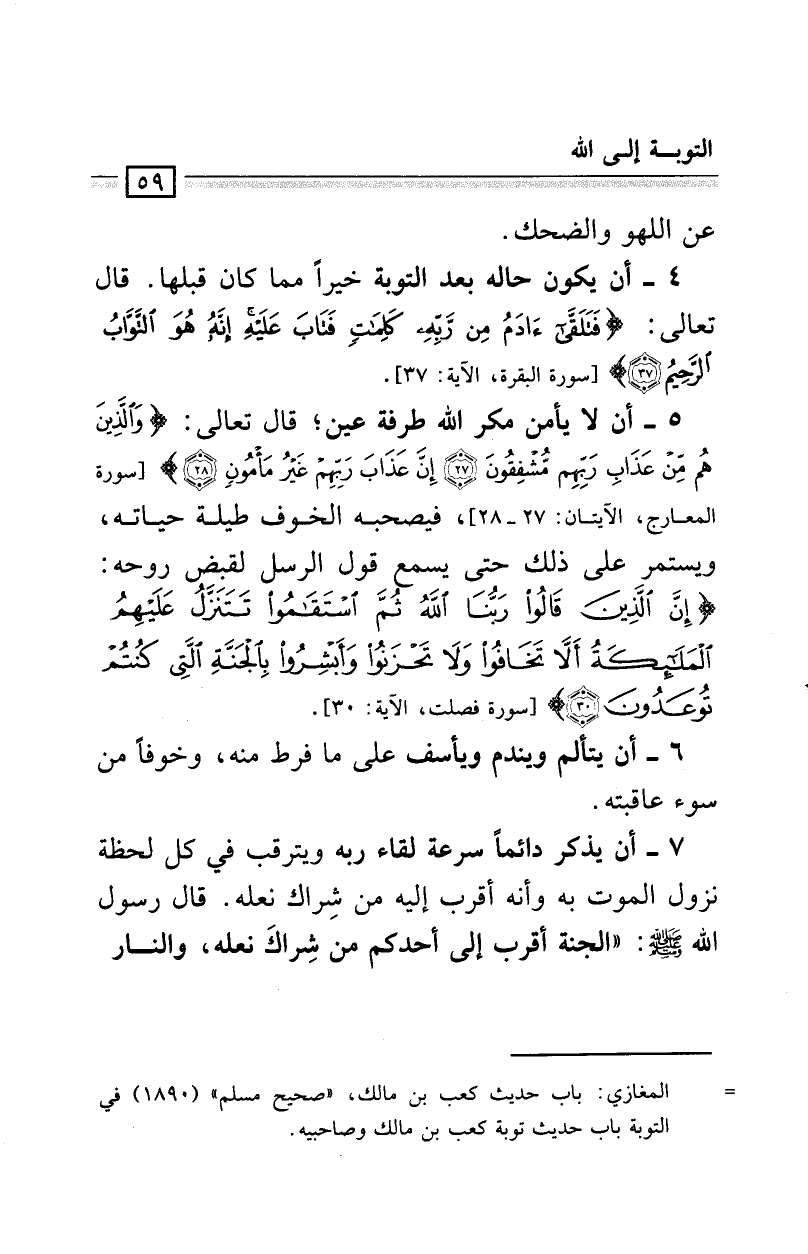 التوبـة إلـى الله
٥٩
عن اللهو والضحك.
٤ ـ أن يكون حاله بعد التوبة خيراً مما كان قبلها. قال
تعالى: ﴿فَتَلَقَّىٰٓ ءَادَمُ مِن رَّبِّهِۦ كَلِمَٰتٍ فَتَابَ عَلَيْهِۚ إِنَّهُۥ هُوَ ٱلتَّوَّابُ
ٱلرَّحِيمُ ٣٧﴾ [سورة البقرة، الآية: ٣٧].
٥ ـ أن لا يأمن مكر الله طرفة عين؛ قال تعالى: ﴿وَٱلَّذِينَ
هُم مِّنْ عَذَابِ رَبِّهِم مُّشْفِقُونَ ٢٧ إِنَّ عَذَابَ رَبِّهِمْ غَيْرُ مَأْمُونٍ ٢٨﴾ [سورة
المعارج، الآيتان: ٢٧ ـ٢٨]، فيصحبه الخوف طيلة حياته،
ويستمر على ذلك حتى يسمع قول الرسل لقبض روحه:
﴿إِنَّ ٱلَّذِينَ قَالُوا۟ رَبُّنَا ٱللَّهُ ثُمَّ ٱسْتَقَٰمُوا۟ تَتَنَزَّلُ عَلَيْهِمُ
ٱلْمَلَٰٓئِكَةُ أَلَّا تَخَافُوا۟ وَلَا تَحْزَنُوا۟ وَأَبْشِرُوا۟ بِٱلْجَنَّةِ ٱلَّتِى كُنتُمْ
تُوعَدُونَ ٣٠﴾ [سورة فصلت، الآية: ٣٠].
٦ ـ أن يتألم ويندم ويأسف على ما فرط منه، وخوفاً من
سوء عاقبته.
٧ ـ أن يذكر دائماً سرعة لقاء ربه ويترقب في كل لحظة
نزول الموت به وأنه أقرب إليه من شِراك نعله. قال رسول
الله ﷺ: «الجنة أقرب إلى أحدكم من شِراكَ نعله، والنـار
= المغازي: باب حديث كعب بن مالك، «صحيح مسلم» (١٨٩٠) في
التوبة باب حديث توبة كعب بن مالك وصاحبيه.